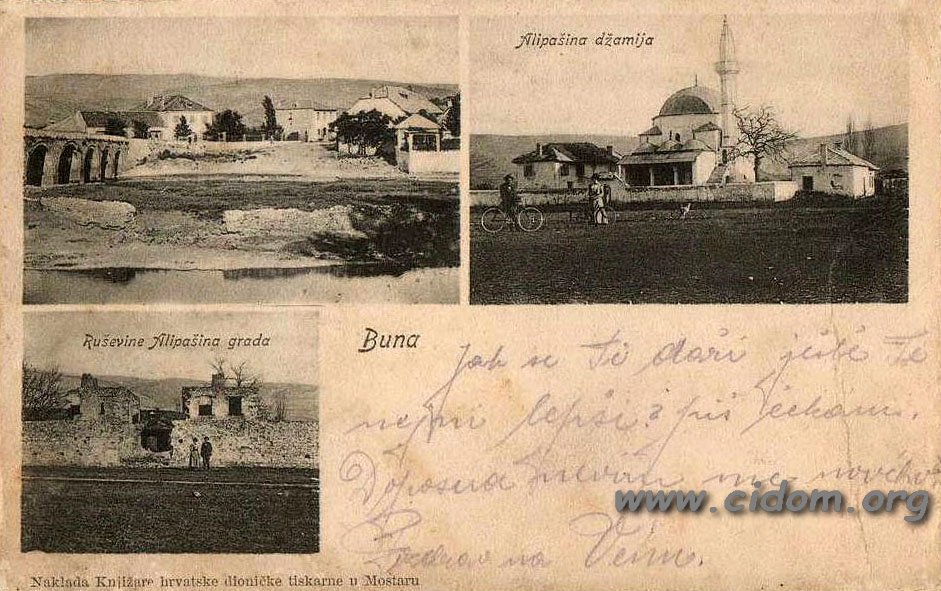 Alipašina džamija
Ruševine Alipašina grada
Buna
Jak se Ti daří ještě Ti
není lepší? piš čekám.
Doposud nevím nic
Pozdrav na
www.cidom.org
Naklada Knjižare hrvatske dioničke tiskarne u Mostaru